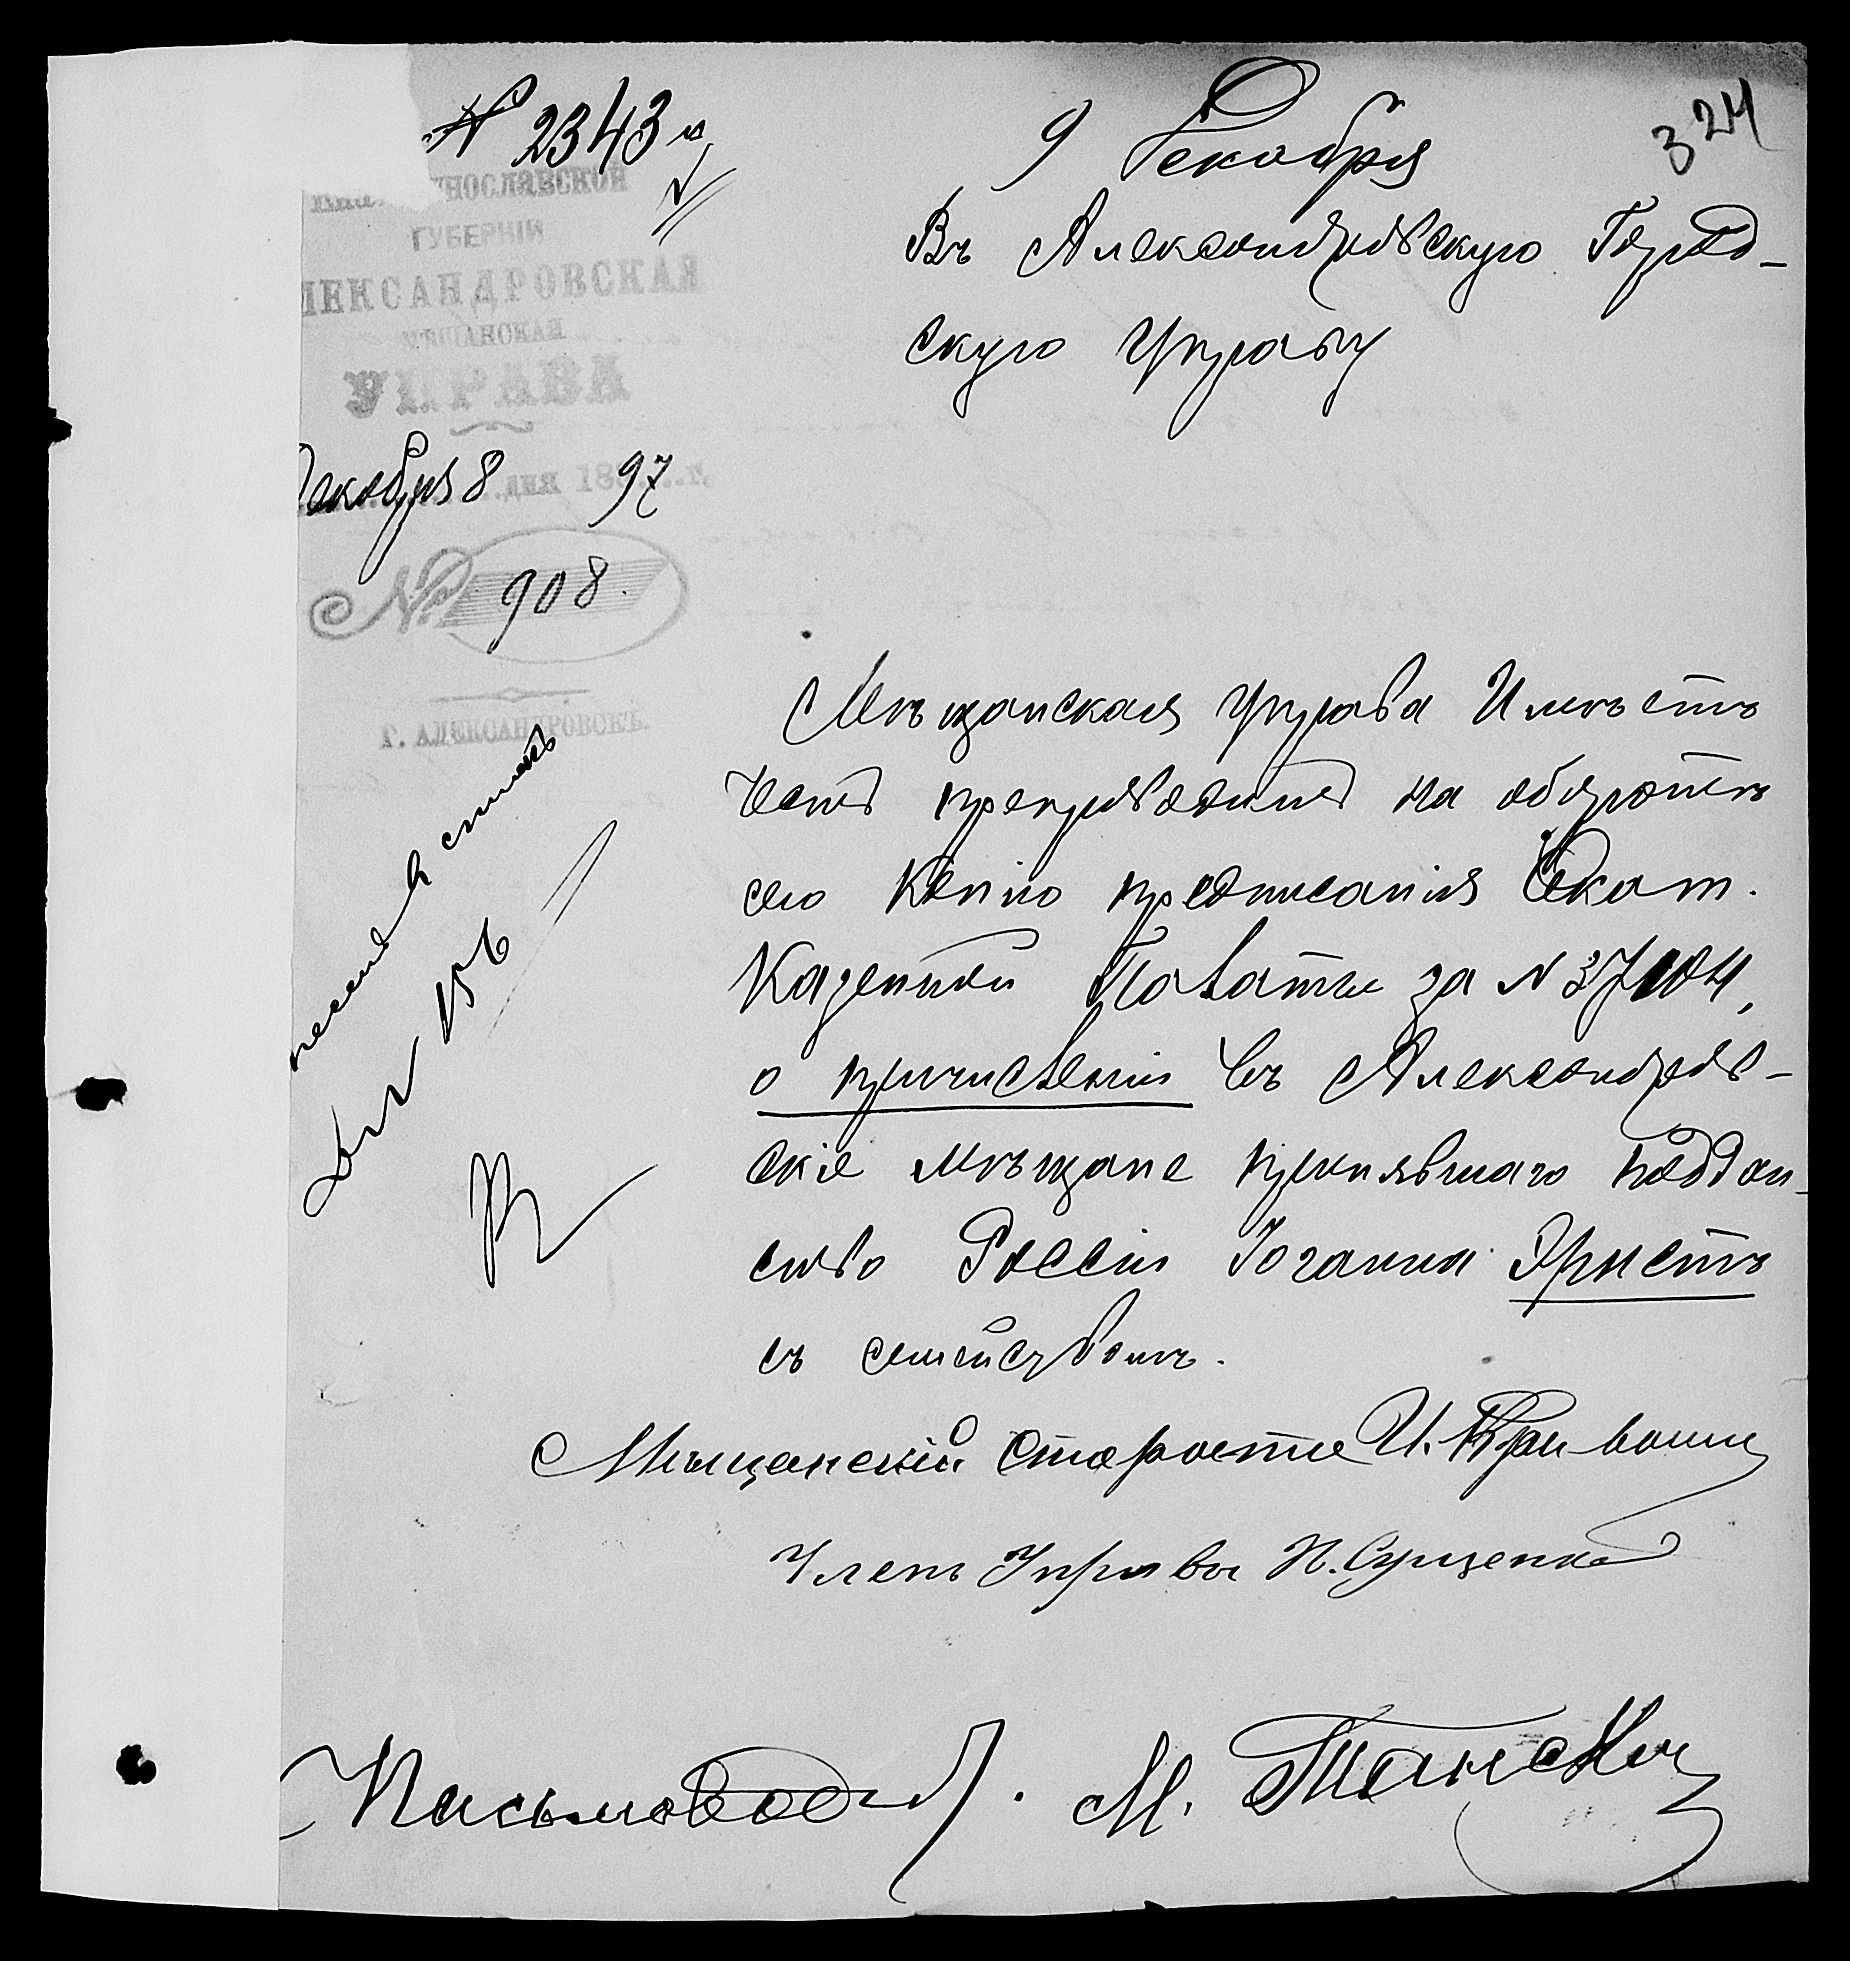 № 2343
9 Декабря
324
нославской
ГУБЕРНІИ
ЛЕКСАНДРОВСКАЯ
МѢЩАНСКАЯ
УПРАВА
Декабря 8 дня 1897 г.
№ 908.
Г. АЛЕКСАНДРОВСКЪ.
Въ Александровскую Город-
скую Управу
Мѣщанская Управа Имѣетъ
честь препроводить на оборотѣ
сего копію предписанія Екат.
Казенной Палаты за № 37104,
о причисленіи въ Александров-
скіе мѣщане принявшаго поддан-
ство Россіи Іоганна Эрнстъ
съ семействомъ.
Мѣщанскій Староста И.
Членъ Управы И. Сущенко
Письмоводит. М. Танскій